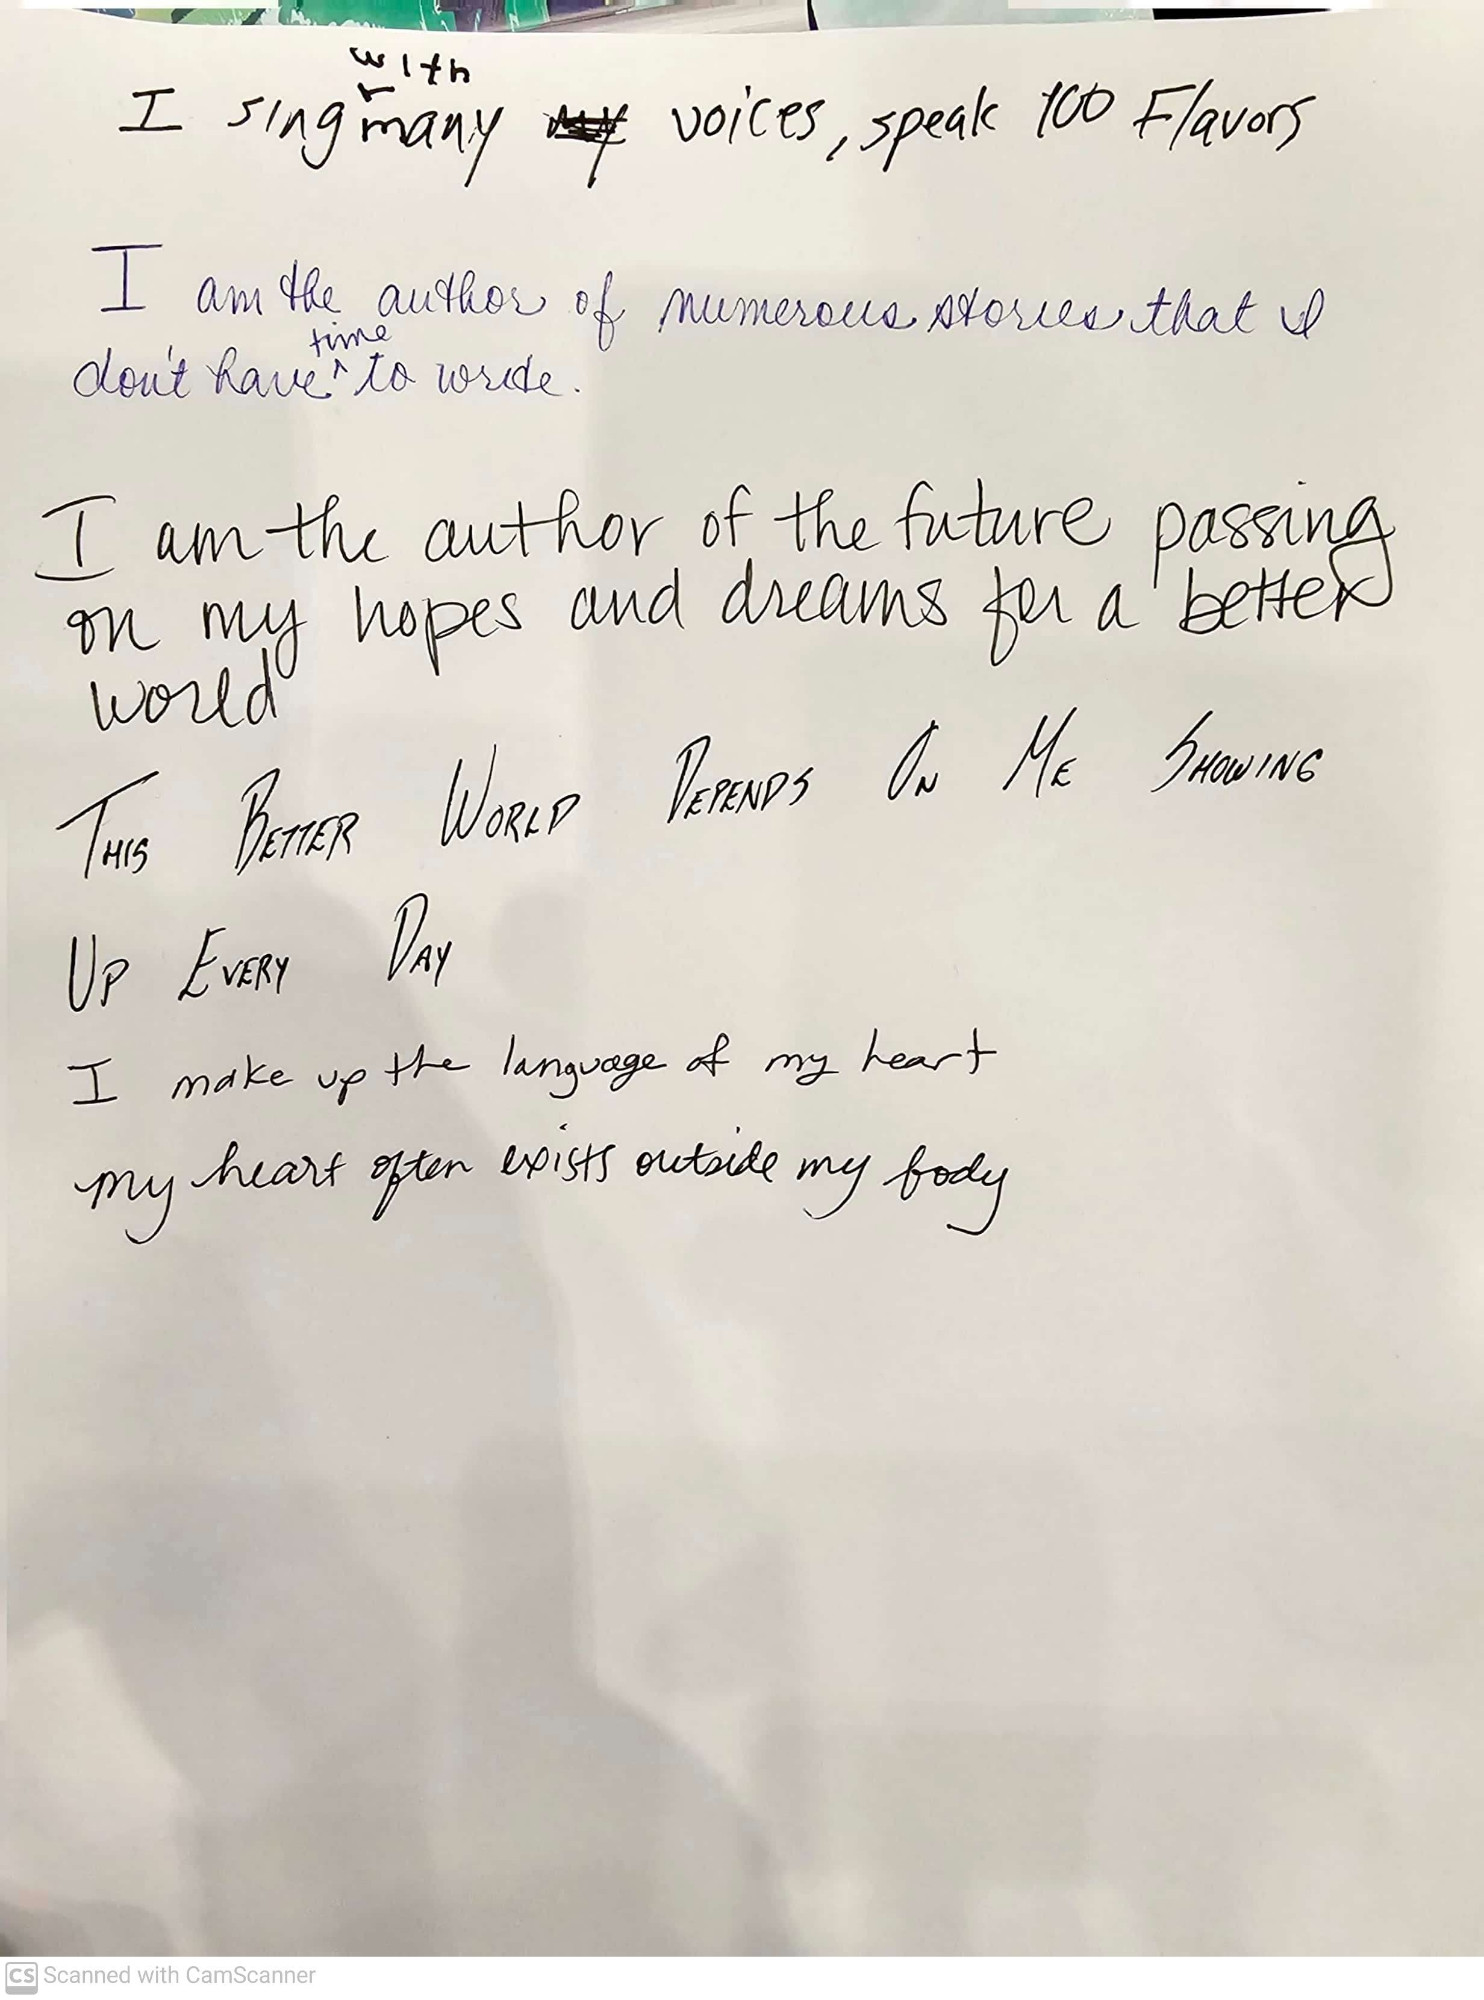 I sing with many voices, speak 100 Flavors
I am the author of numerous stories that I
don't have time to write.
I am the author of the future passing
on my hopes and dreams for a better
world
THIS BETTER WORLD DEPENDS ON ME SHOWING
UP EVERY DAY
I make up the language of my heart
my heart often exists outside my body
CS Scanned with CamScanner